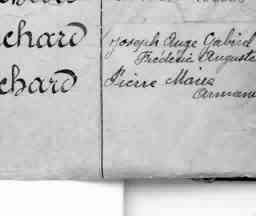 chard Joseph Ange Gabriel
Frédéric Auguste
chard Pierre Marie
Armand